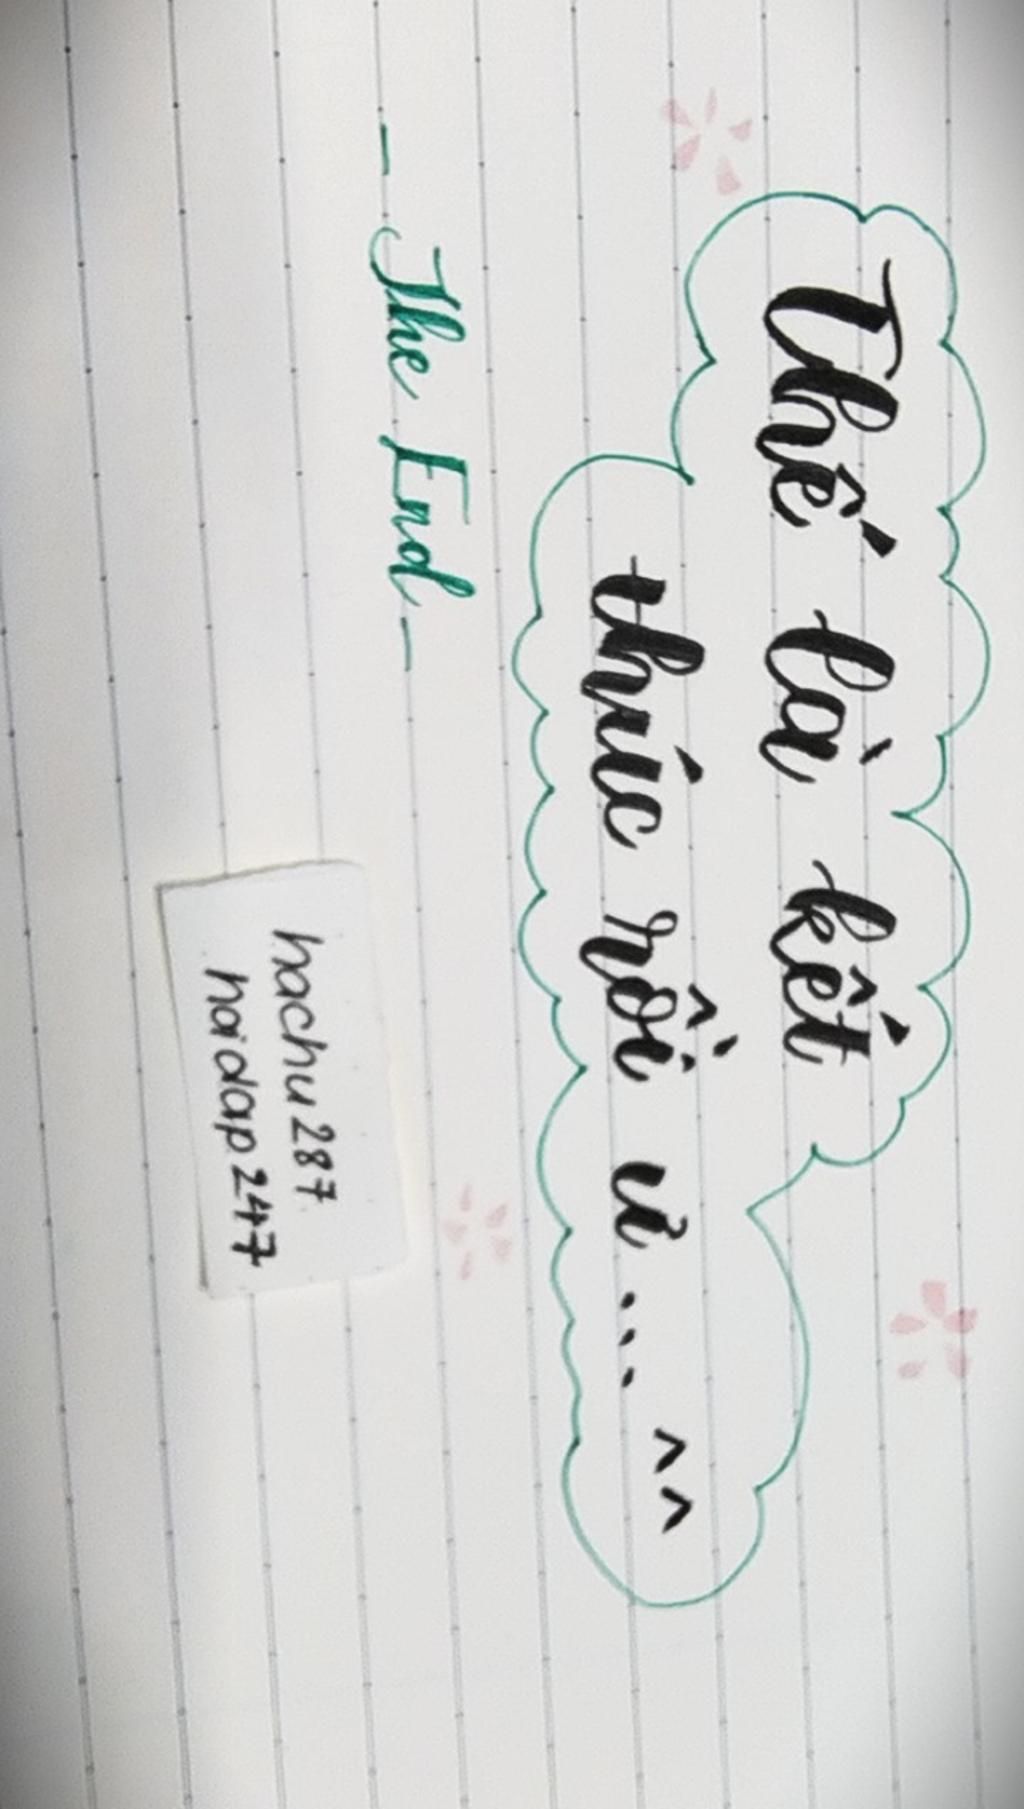 Thế là kết
thúc rồi ư... ^^
— The End —
hachu287
hoidap247